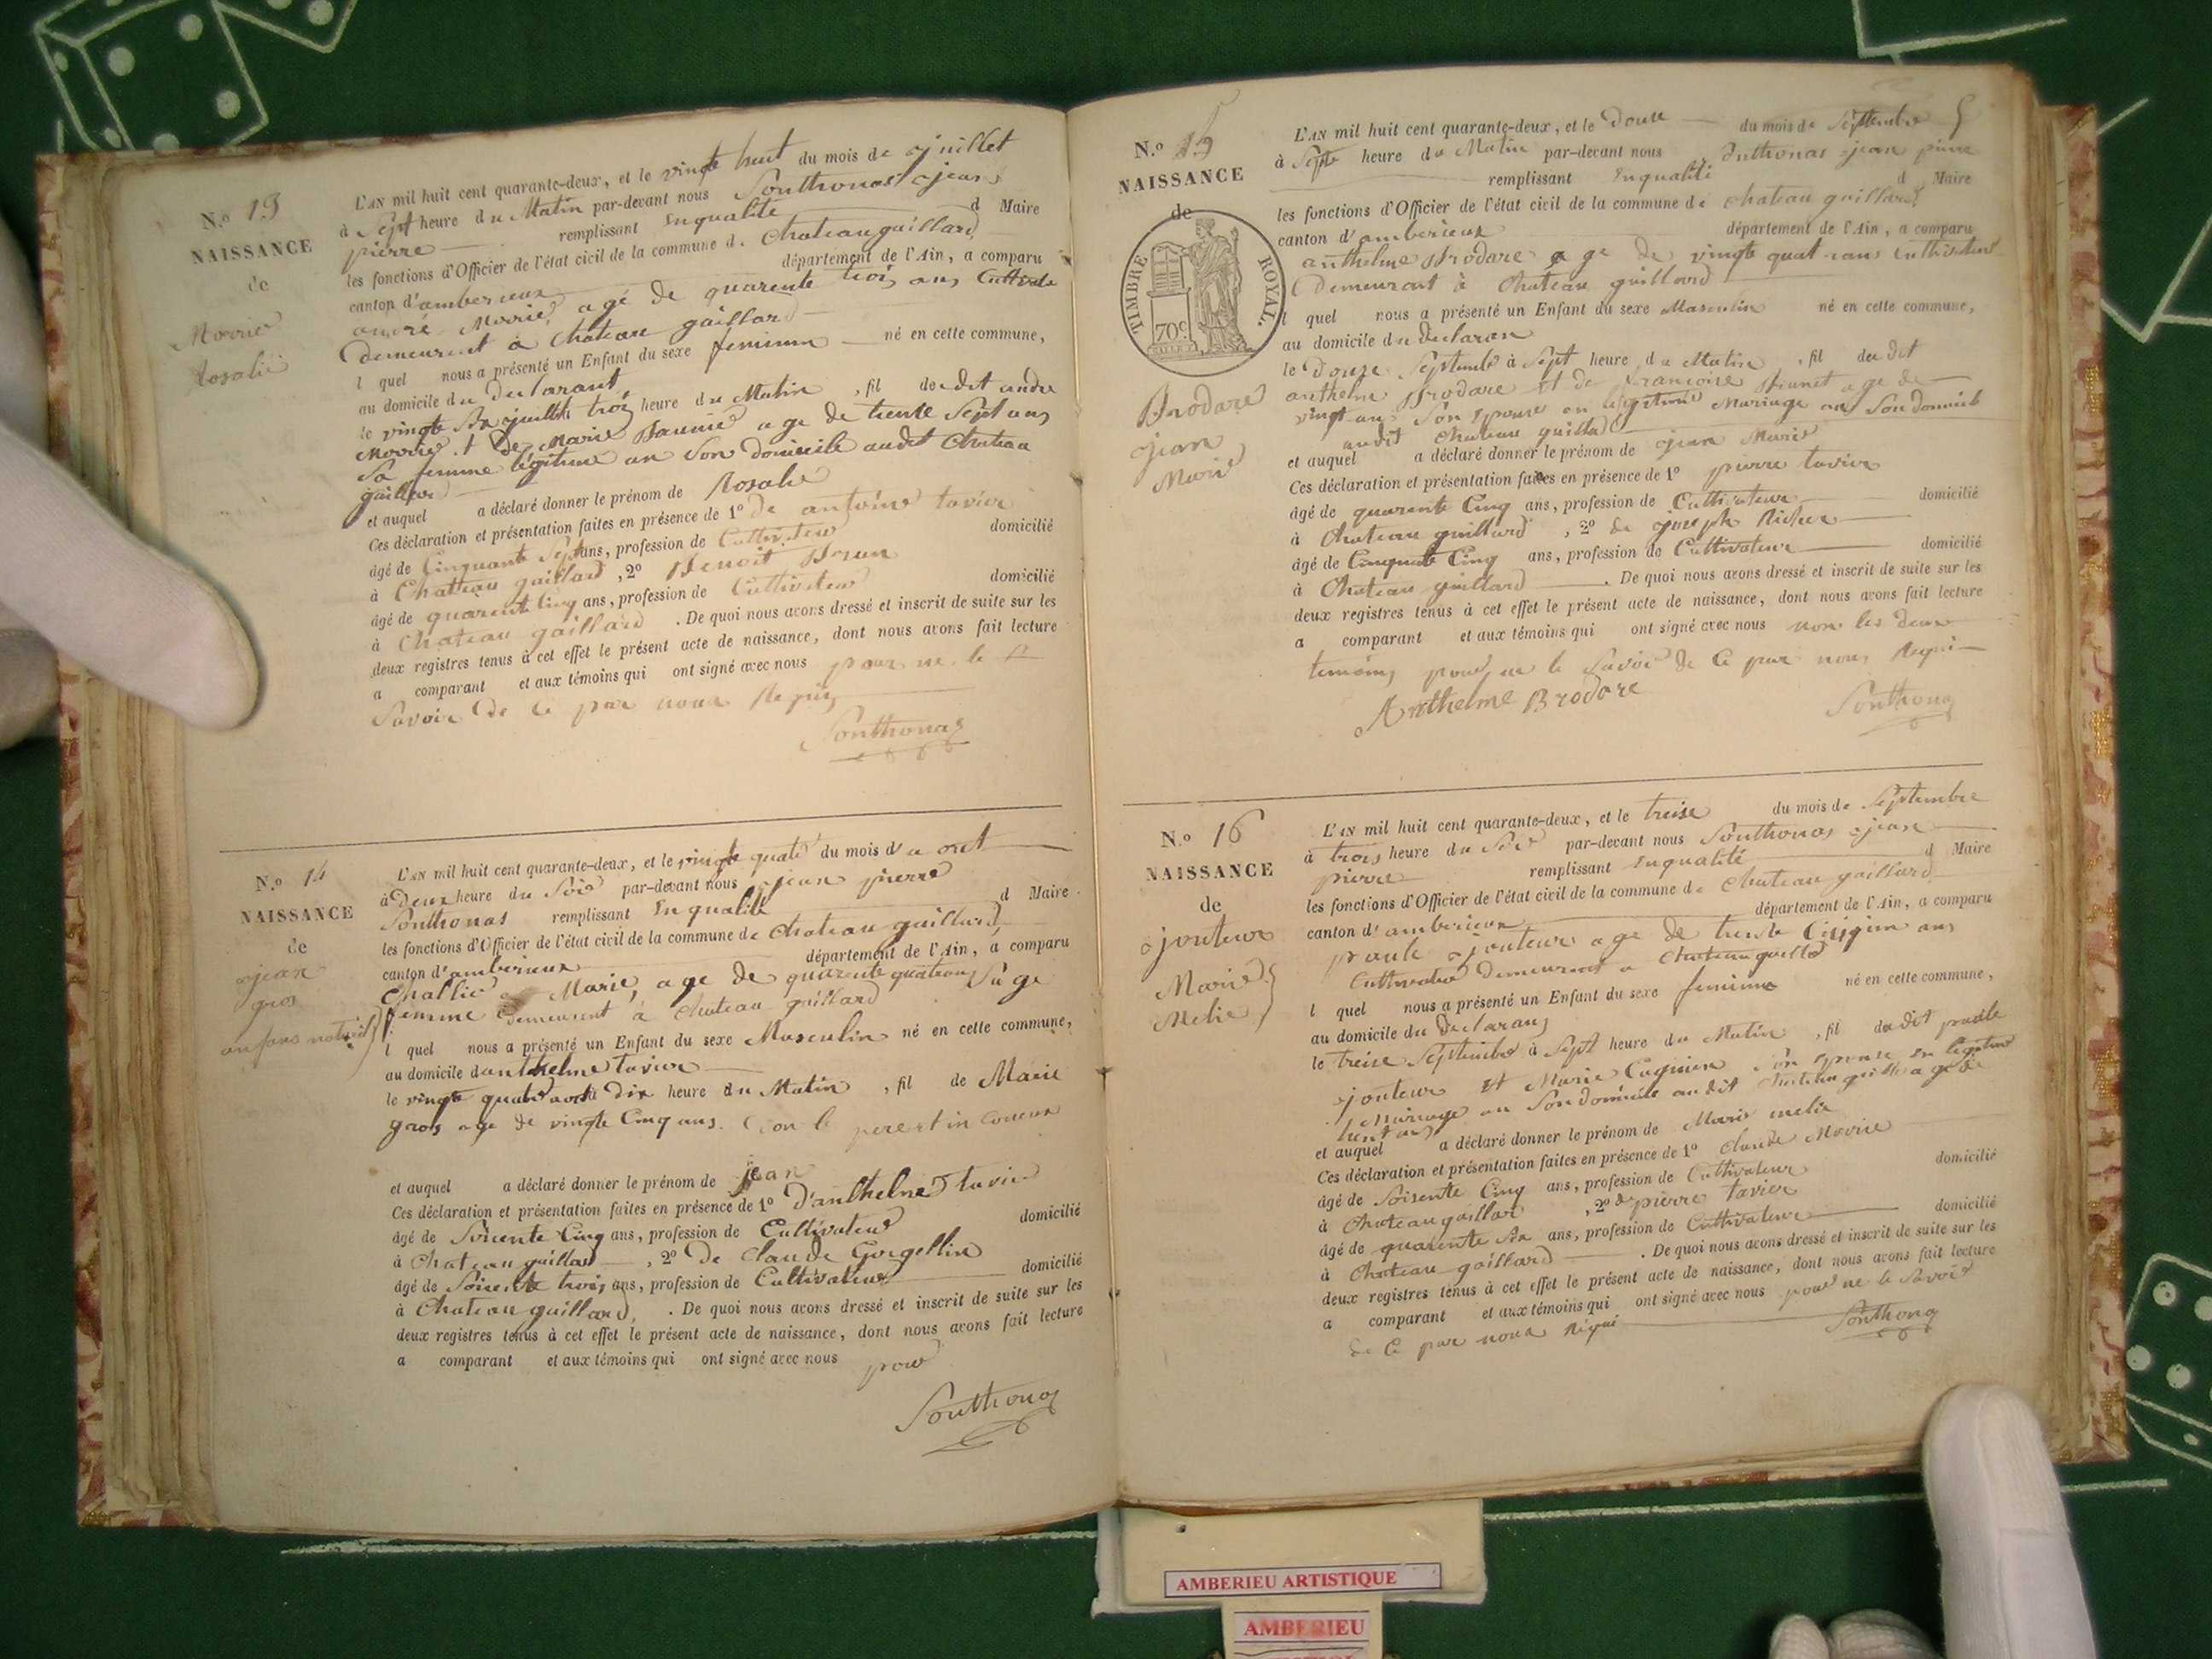 N.o 13
NAISSANCE
de
Morrier
Rosalie
L'AN mil huit cent quarante-deux, et le vingt huit du mois de juillet
à Sept heure du Matin par-devant nous Sonthonas jean
pierre remplissant En qualité d Maire
les fonctions d'Officier de l'état civil de la commune de Chateau gaillard
canton d'amberieux département de l'Ain, a comparu
andré agé de quarente trois ans Cultivate
demeurent à Chateau gaillard
l quel nous a présenté un Enfant du sexe feminin né en cette commune,
au domicile du Declarant
le vingt Six juillet trois heure du Matin , fil du dit andre
et de Marie age de trente Sept ans
Sa femme légitime an Son domicile audit Chateau
gaillard
et auquel a déclaré donner le prénom de Rosalie
Ces déclaration et présentation faites en présence de 1o de antoine tavier
âgé de Cinquante Sept ans, profession de Cultivateur domicilié
à Chatteau gaillard , 2o Benoit
âgé de quarente Cinq ans, profession de Cultivateur domicilié
à Chateau gaillard . De quoi nous avons dressé et inscrit de suite sur les
deux registres tenus à cet effet le présent acte de naissance, dont nous avons fait lecture
a comparant et aux témoins qui ont signé avec nous pour ne le
Savoir de Ce par nous Requis
Sonthonas
N.o 14
NAISSANCE
de
jean
gros
anfans naturel
L'AN mil huit cent quarante-deux, et le vingte quatre du mois d'aout
à Deux heure du Soir par-devant nous jean pierre
Sonthonas remplissant En qualité d Maire
les fonctions d'Officier de l'état civil de la commune de Chateau gaillard
canton d'amberieux département de l'Ain, a comparu
Marie, age de quarente quatre ans Sage
femme demeurent à Chateau gaillard
l quel nous a présenté un Enfant du sexe Masculin né en cette commune,
au domicile d'anthelme tavier
le vingte quatre aout à dix heure du Matin , fil de Marie
gros age de vingte Cinq ans. Don le pere et in Coneux
et auquel a déclaré donner le prénom de jean
Ces déclaration et présentation faites en présence de 1o D'anthelme tavier
âgé de Soicente Cinq ans, profession de Cultivateur domicilié
à Chateau gaillard , 2o de Claude Gorgellin
âgé de Soicente trois ans, profession de Cultivateur domicilié
à Chateau gaillard . De quoi nous avons dressé et inscrit de suite sur les
deux registres tenus à cet effet le présent acte de naissance, dont nous avons fait lecture
a comparant et aux témoins qui ont signé avec nous pour
Sonthonas
N.o 15
NAISSANCE
de
TIMBRE ROYAL.
70c
Brodare
jean
Marie
L'AN mil huit cent quarante-deux, et le Douze du mois de Septembre 5
à Sept heure du Matin par-devant nous Sonthonas jean pierre
remplissant En qualité d Maire
les fonctions d'Officier de l'état civil de la commune de Chateau gaillard
canton d'amberieux département de l'Ain, a comparu
anthelme Brodare age de vingte quatre ans Cultivateur
Demeurant à Chateau gaillard
l quel nous a présenté un Enfant du sexe Masculin né en cette commune,
au domicile du Declaran
le Douze Septembre à Sept heure du Matin , fil du dit
anthelme Brodare et de Francoise age de
vingt ans Son Epouse en legitime Mariage an Son domicile
audit Chateau gaillard
et auquel a déclaré donner le prénom de jean Marie
Ces déclaration et présentation faites en présence de 1o pierre tavier
âgé de quarente Cinq ans, profession de Cultivateur domicilié
à Chateau gaillard , 2o de joseph
âgé de Cinquante Cinq ans, profession de Cultivateur domicilié
à Chateau gaillard . De quoi nous avons dressé et inscrit de suite sur les
deux registres tenus à cet effet le présent acte de naissance, dont nous avons fait lecture
a comparant et aux témoins qui ont signé avec nous non les deux
temoins pour ne le Savoir de Ce par nous Requi
Anthelme Brodare
Sonthonas
N.o 16
NAISSANCE
de
jouteur
Marie
Melie
L'AN mil huit cent quarante-deux, et le treise du mois de Septembre
à trois heure du Soir par-devant nous Sonthonas jean
pierre remplissant En qualité d Maire
les fonctions d'Officier de l'état civil de la commune de Chateau gaillard
canton d'amberieux département de l'Ain, a comparu
jouteur age de trente ans
Cultivateur demeurant a Chateau gaillard
l quel nous a présenté un Enfant du sexe feminin né en cette commune,
au domicile du Declarans
le treise Septembre à Sept heure du Matin , fil du dit
jouteur et Marie Son Epouse en legitime
Mariage an Son domicile audit Chateau gaillard age de
trent ans
et auquel a déclaré donner le prénom de Marie melie
Ces déclaration et présentation faites en présence de 1o Claude
âgé de Soisente Cinq ans, profession de Cultivateur domicilié
à Chateau gaillar , 2o de pierre tavier
âgé de quarente Six ans, profession de Cultivateur domicilié
à Chateau gaillard . De quoi nous avons dressé et inscrit de suite sur les
deux registres tenus à cet effet le présent acte de naissance, dont nous avons fait lecture
a comparant et aux témoins qui ont signé avec nous pour ne le Savoir
de Ce par nous Requi
Sonthonas
AMBERIEU ARTISTIQUE
AMBERIEU